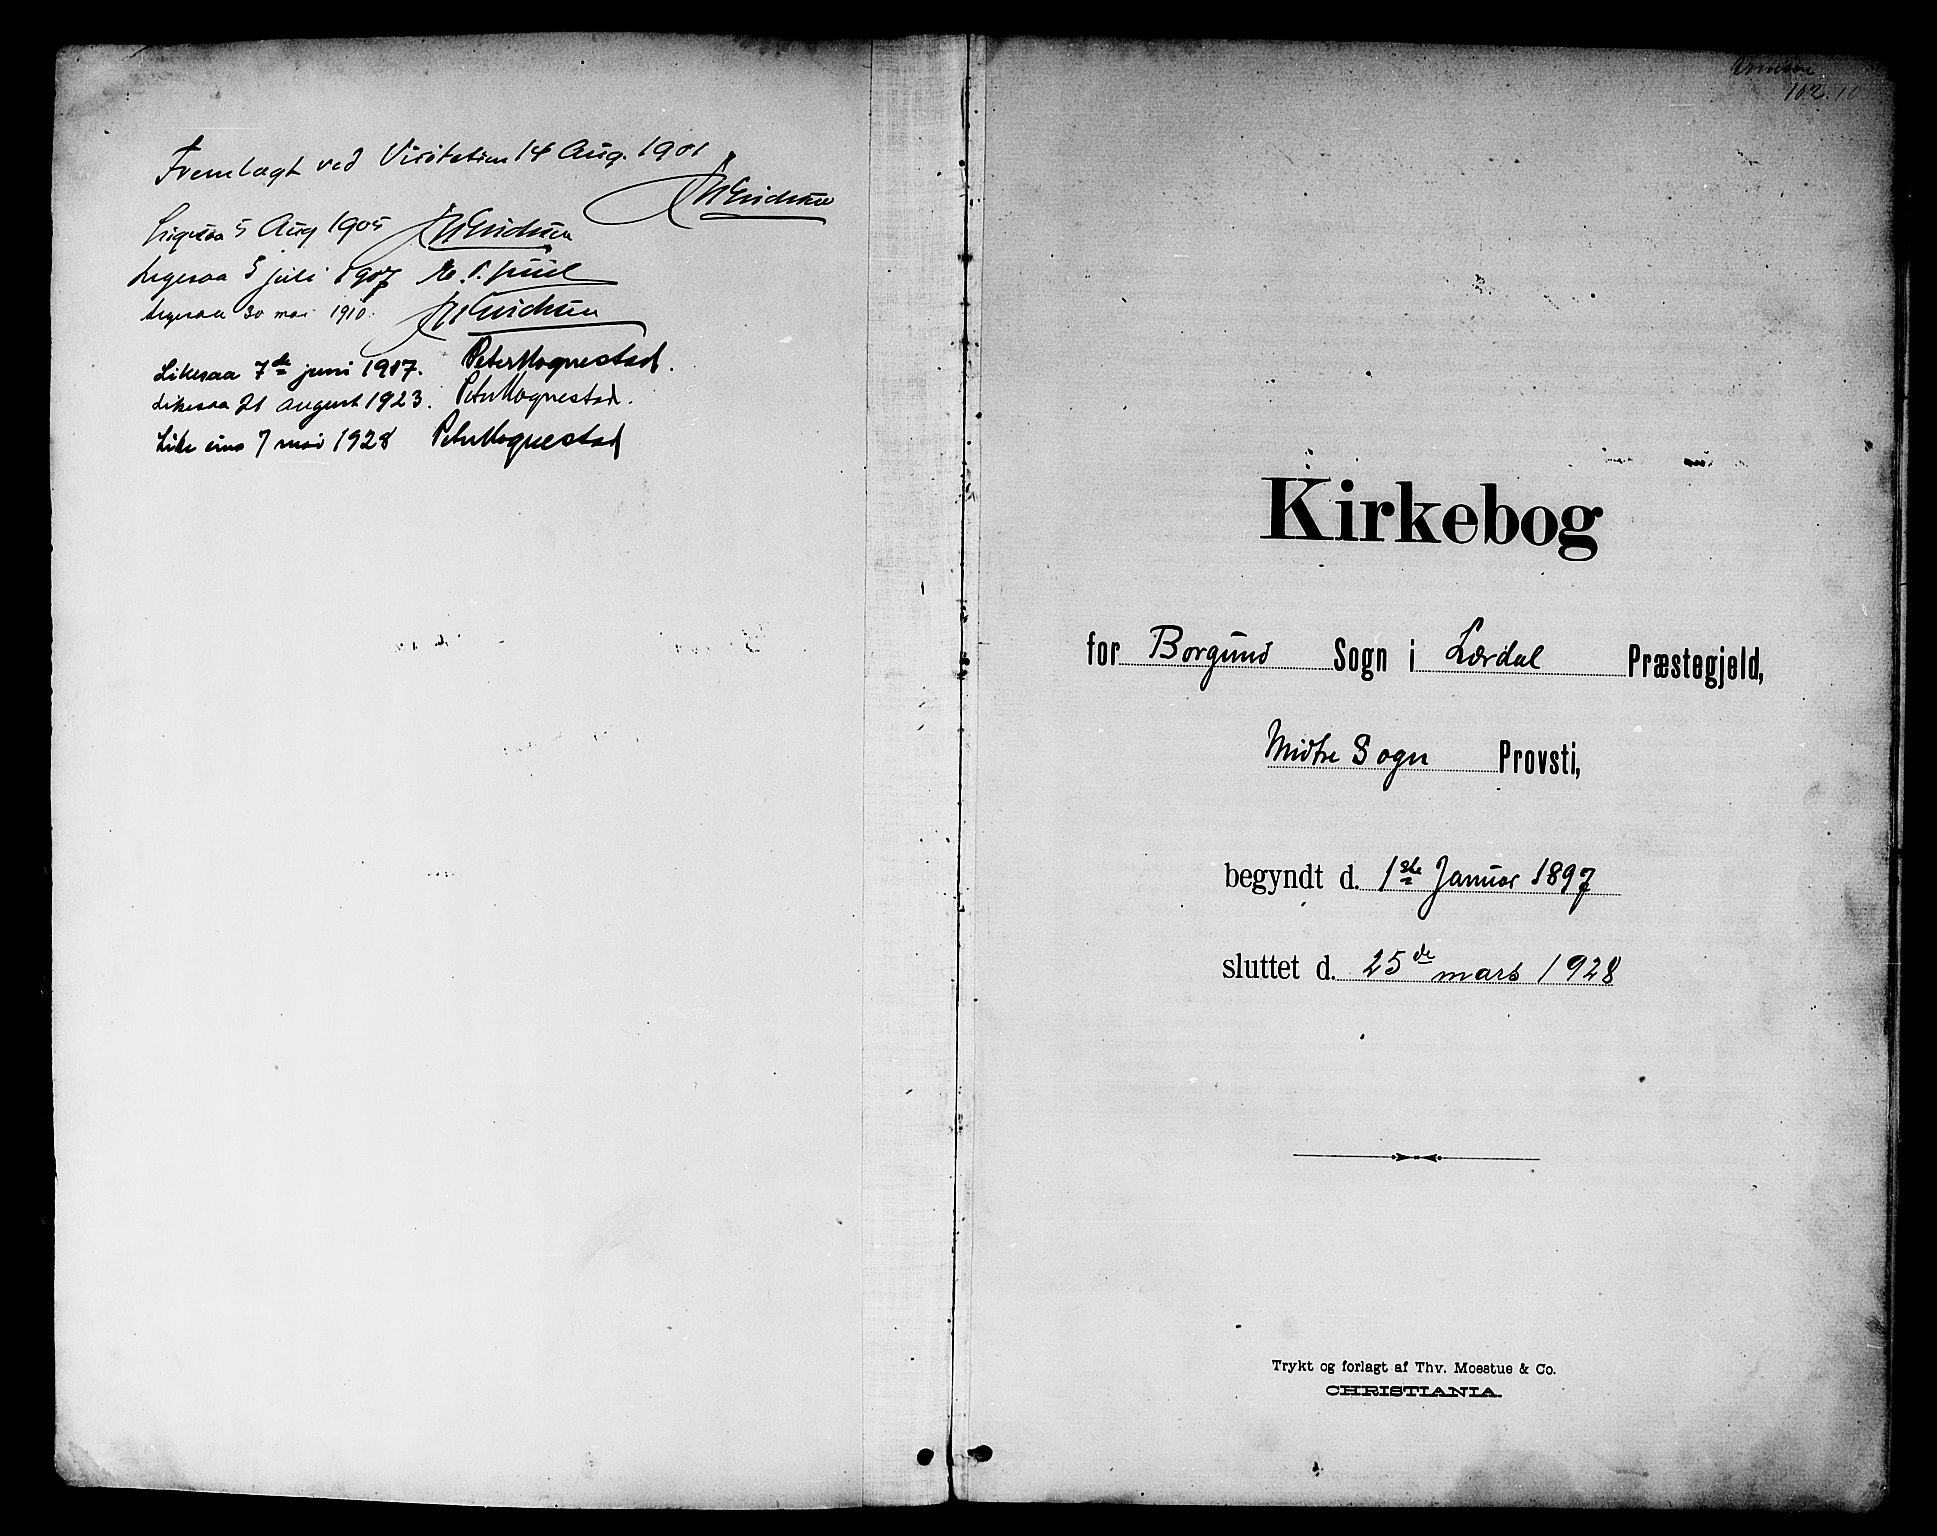 Fremlagt ved Visitatsen 14 Aug. 1901
Ligesaa 5 Aug 1905
Ligesaa 5 juli 1907 Juul
Ligesaa 30 mai 1910.
Likesaa 7de juni 1917. Peter Hognestad.
Likesaa 21 august 1923. Peter Hognestad.
Like eins 7 mai 1928 Peter Hognestad
102.10
Kirkebog
for Borgund Sogn i Lærdal Præstegjeld,
Midtre Sogn Provsti,
begyndt d. 1ste Januar 1897
sluttet d. 25de mars 1928
Trykt og forlagt af Thv. Moestue & Co.
CHRISTIANIA.